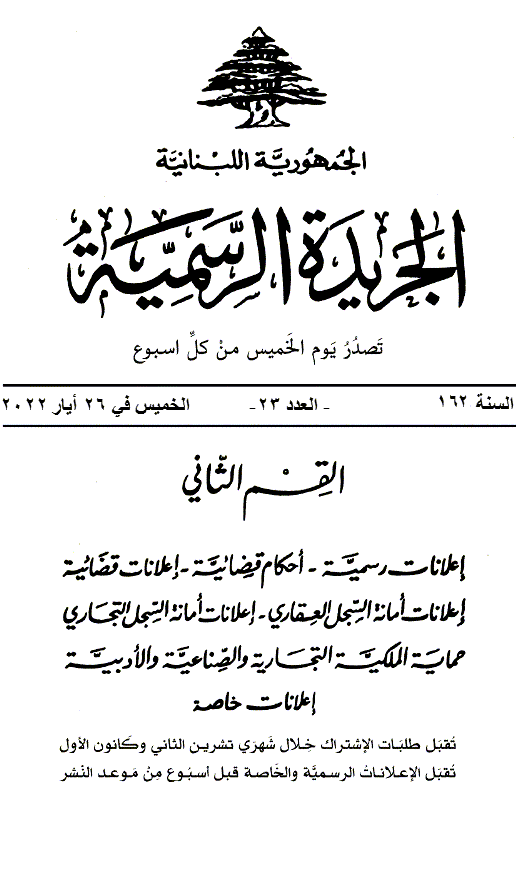 الجمهورية اللبنانية
الجريدة الرسمية
تَصدُرُ يَوم الخَميس منْ كلِّ اسبوع
السنة ١٦٢ - العدد ٢٣ - الخميس في ٢٦ أيار ٢٠٢٢
القِسْم الثّاني
إعلانات رسميَّة - أحكام قضائيَّة - إعلانات قضائية
إعلانات أمانة السِّجل العقاري - إعلانات أمانة السِّجل التجاري
حماية الملكيَّة التجارية والصّناعيَّة والأدبيَّة
إعلانات خاصة
تُقبَل طلبَات الإشتراك خِلال شَهرَي تشرين الثاني وكَانون الأول
تُقبَل الإعلاناتُ الرسميَّة والخَاصة قبل أسبُوع مِنْ مَوعد النَشر